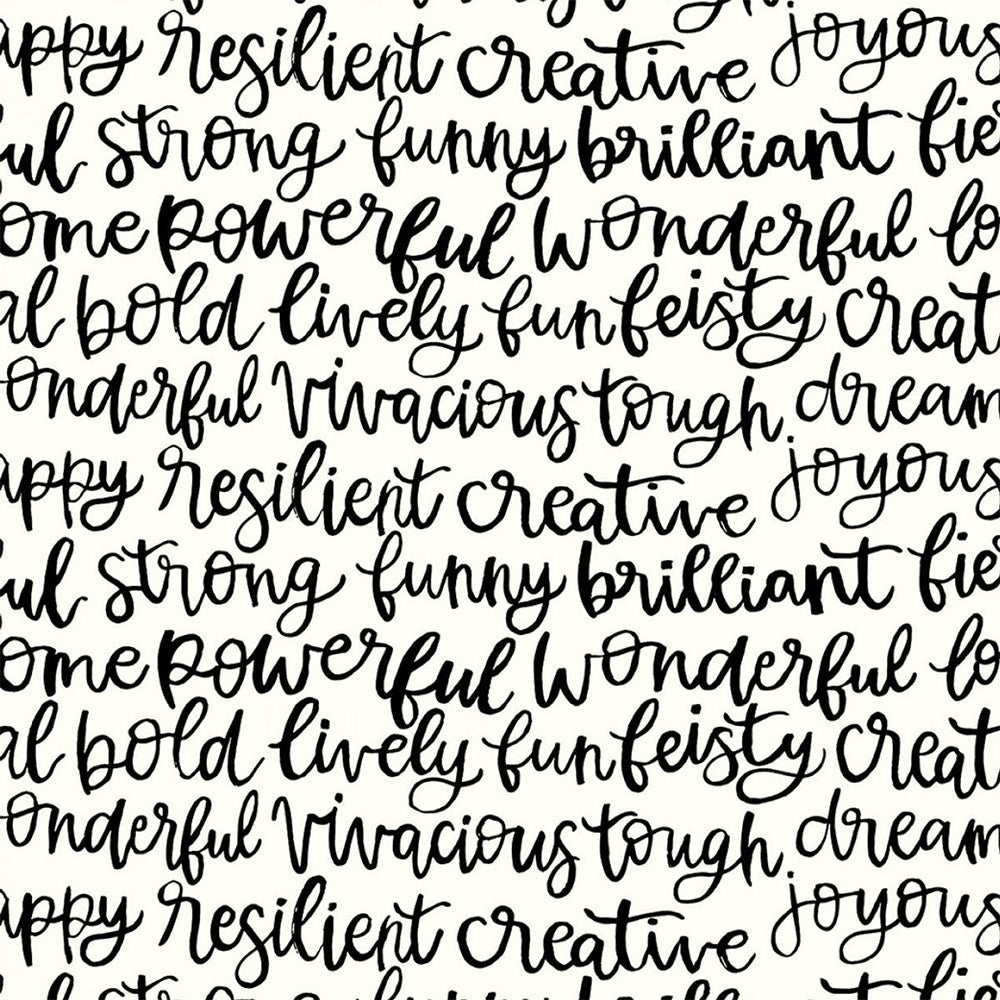 appy resilient creative joyous
ful strong funny brilliant fie
ome powerful wonderful lo
al bold lively fun feisty creat
onderful vivacious tough dream
appy resilient creative joyous
ful strong funny brilliant fie
ome powerful wonderful lo
al bold lively fun feisty creat
onderful vivacious tough dream
appy resilient creative joyous
strong funny brilliant